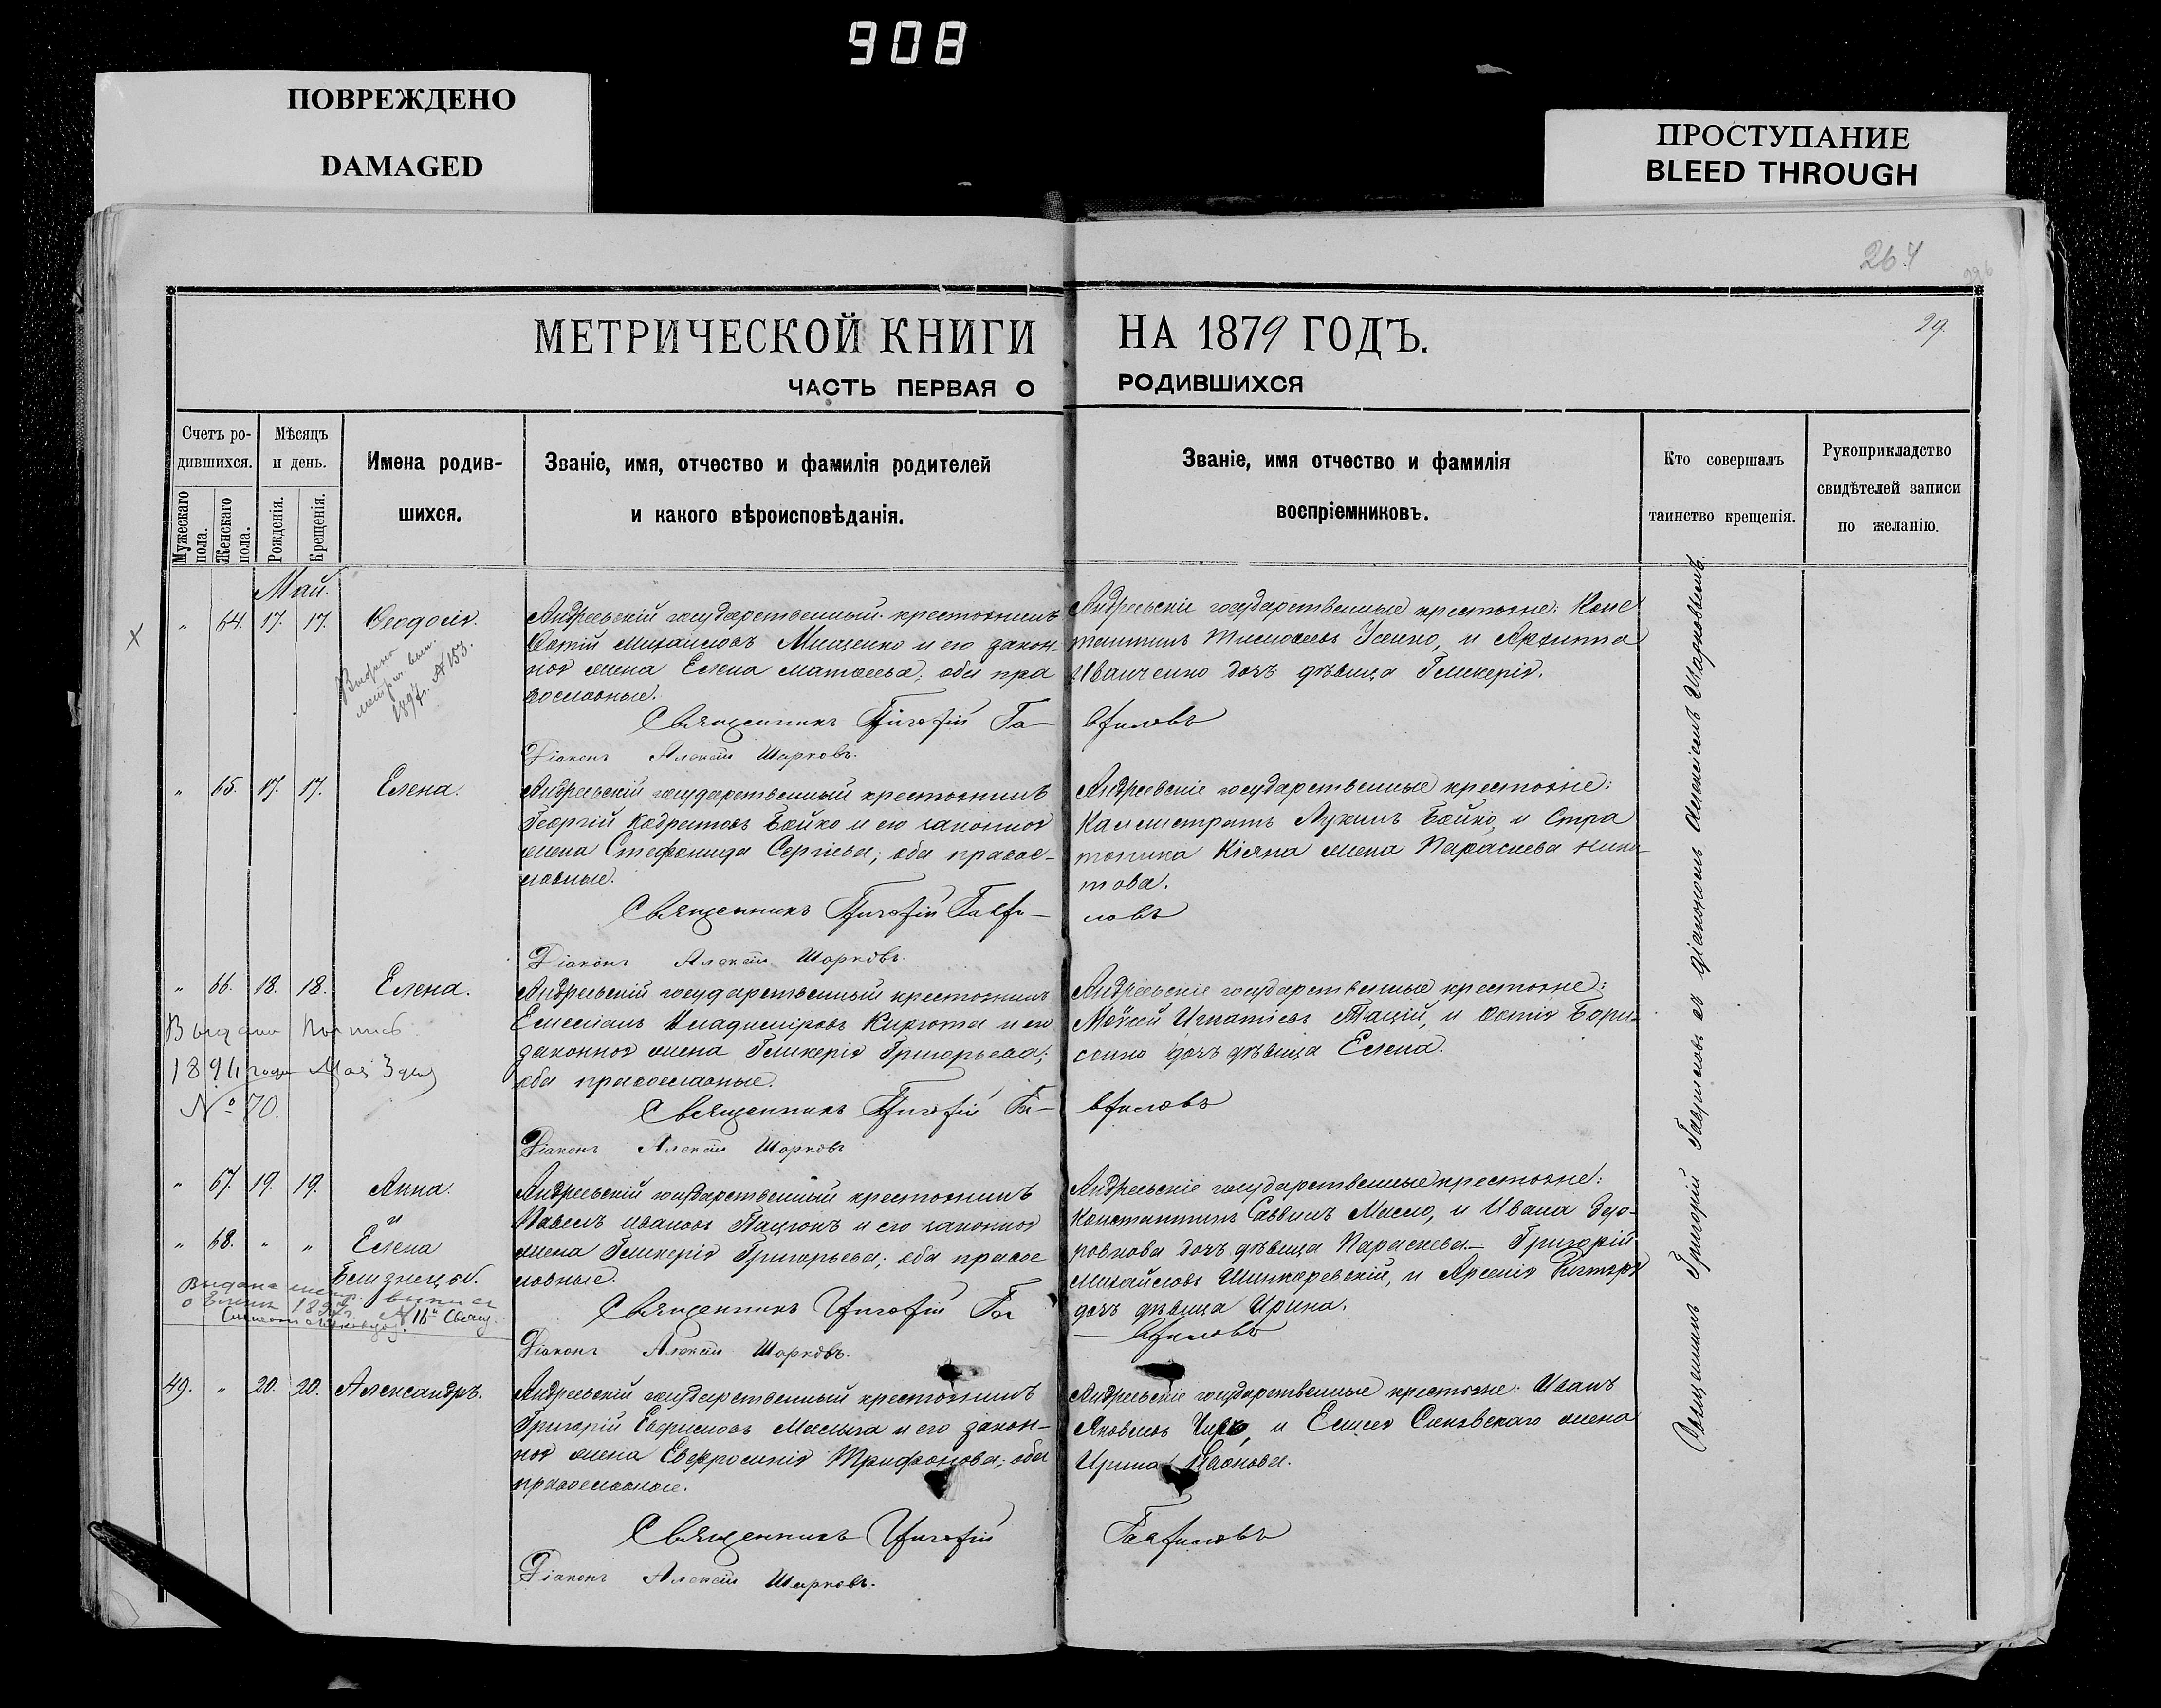 908
ПОВРЕЖДЕНО
DAMAGED
ПРОСТУПАНИЕ
BLEED THROUGH
264
29.
МЕТРИЧЕСКОЙ КНИГИ НА 1879 ГОДЪ.
ЧАСТЬ ПЕРВАЯ О РОДИВШИХСЯ
Счетъ ро-
дившихся.
Мужескаго
пола.
Женскаго
пола.
Мѣсяцъ
и день.
Рожденія.
Крещенія.
Имена родив-
шихся.
Званіе, имя, отчество и фамилія родителей
и какого вѣроисповѣданія.
Званіе, имя отчество и фамилія
воспріемниковъ.
Кто совершалъ
таинство крещенія.
Рукоприкладство
свидѣтелей записи
по желанію.
Май.
" 64. 17. 17. Ѳеодосія.
Андреевскій государственный крестьянинъ
Фотій Михайловъ Мищенко и его закон-
ная жена Елена Матѳеева; оба пра
вославные.
Священникъ Григорій Га-
Діаконъ Алексій Шарковъ.
Андреевскіе государственные крестьяне: Конс
тантинъ Тимоѳеевъ Усенко, и
Иванченко дочь дѣвица Гликерія.
вриловъ
1897 г. № 153.
" 65. 17. 17. Елена.
Андреевскій государственный крестьянинъ
Георгій Кодратовъ Бойко и его законная
жена Стефанида Сергіева; оба правос-
лавные.
Священникъ Григорій Гаври-
Діаконъ Алексій Шарковъ.
Андреевскіе государственные крестьяне:
Каллистратъ Лукинъ Бойко, и Стра
тоника Кіяна жена Параскева Ники-
това.
ловъ
" 66. 18. 18. Елена.
1894 года Мая 3 дня
№ 70.
Андреевскій государственный крестьянинъ
Емеліанъ Владиміровъ Кирюта и его
законная жена Гликерія Григорьева;
оба православные.
Священникъ Григорій Га-
Діаконъ Алексій Шарковъ
Андреевскіе государственные крестьяне:
Мойсей Игнатіевъ Тацій, и Фотія Бори-
сенко дочь дѣвица Елена.
вриловъ
" 67. 19. 19. Анна.
и
" 68. " " Елена
Близнецы.
Андреевскій государственный крестьянинъ
Павелъ Ивановъ Пацюкъ и его законная
жена Гликерія Григорьева; оба правос
лавные.
Священникъ Григорій Га
Діаконъ Алексій Шарковъ.
Андреевскіе государственные крестьяне:
Константинъ Саввинъ Масло, и Ивана
дочь дѣвица Параскева. - Григорій
Михайловъ Шинкаревскій, и Арсенія
дочь дѣвица Ирина.
- вриловъ
49. " 20. 20. Александръ.
Андреевскій государственный крестьянинъ
Григорій Евфимовъ Малыха и его закон-
ная жена Евфросинія Трифонова; оба
православные.
Священникъ Григорій
Діаконъ Алексій Шарковъ.
Андреевскіе государственные крестьяне: Иванъ
Яковлевъ и Елисея жена
Ирина
Гавриловъ
Священникъ Григорій Гавриловъ съ діакономъ Алексіемъ Шарковымъ.